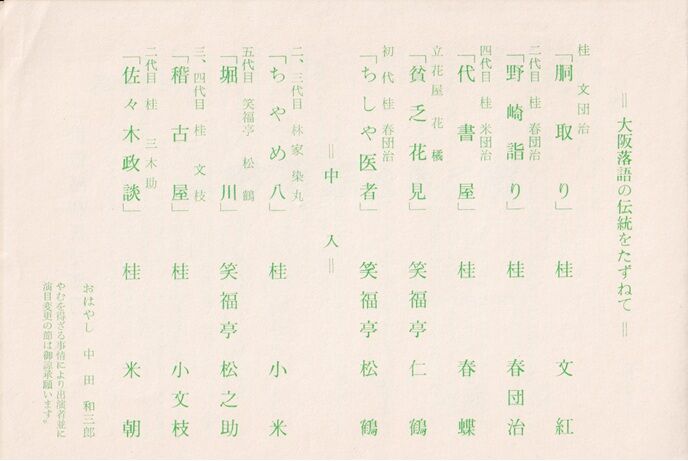 ＝大阪落語の伝統をたずねて＝
桂 文団治
「胴取り」 桂 文紅
二代目 桂 春団治
「野崎詣り」 桂 春団治
四代目 桂 米団治
「代書屋」 桂 春蝶
立花屋 花橘
「貧乏花見」 笑福亭 仁鶴
初代 桂 春団治
「ちしゃ医者」 笑福亭 松鶴
＝中入＝
二、三代目 林家 染丸
「ちゃめ八」 桂 小米
五代目 笑福亭 松鶴
「堀川」 笑福亭 松之助
三、四代目 桂 文枝
「稽古屋」 桂 小文枝
二代目 桂 三木助
「佐々木政談」 桂 米朝
おはやし 中田 和三郎
やむを得ざる事情により出演者並に
演目変更の節は御諒承願います。